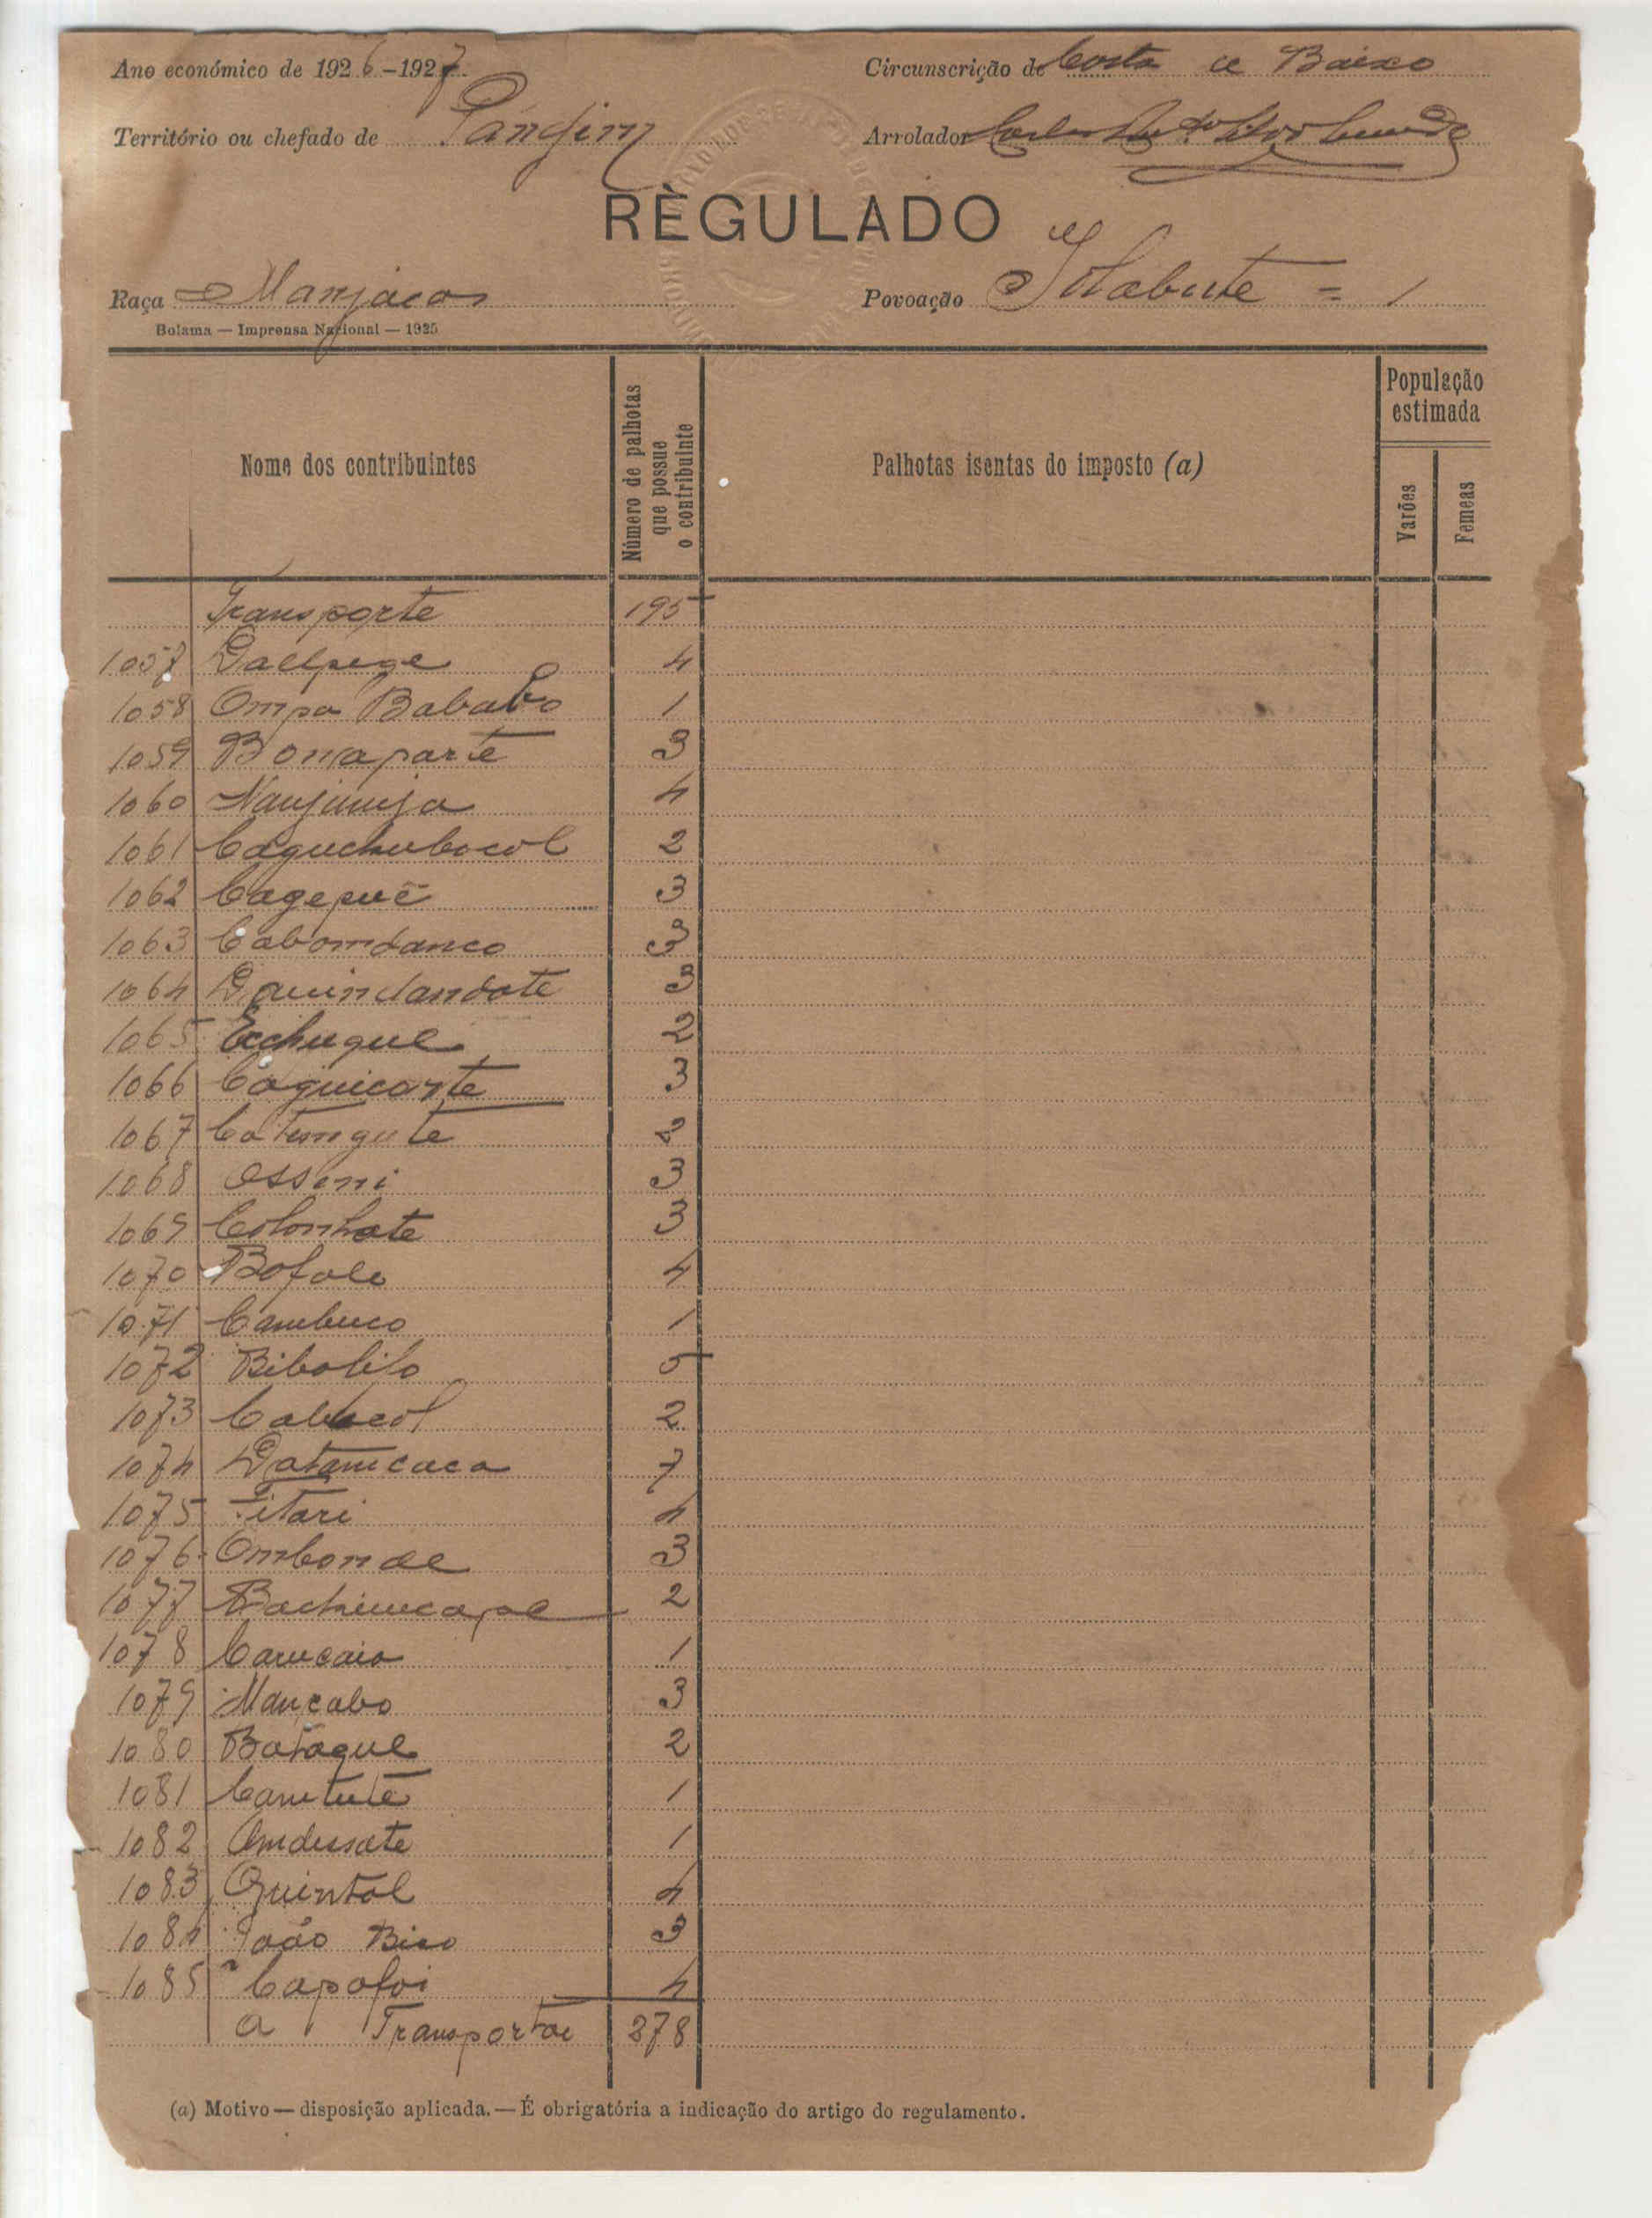 Ano económico de 1926-1927
Circunscrição de Costa de Baixo
Território ou chefado de Pandim
Arrolador
REGULADO
Raça Manjacos
Povoação = 1
Bolama — Imprensa Nacional — 1925
Nome dos contribuintes
Número de palhotas que possue o contribuinte
Palhotas isentas do imposto (a)
População estimada
Varões
Femeas
Transporte 195
1057 4
1058 Ompa Bababo 1
1059 Bonaparte 3
1060 4
1061 Caguchubocol 2
1062 Cagepué 3
1063 Cabomdanco 3
1064 3
1065 2
1066 Caguicarte 3
1067 2
1068 Ossoni 3
1069 Colonhate 3
1070 Bofole 4
1071 Cambuco 1
1072 Bibolito 5
1073 2
1074 7
1075 Titari 4
1076 Ombonde 3
1077 2
1078 1
1079 Mancabo 3
1080 Bataque 2
1081 1
1082 1
1083 Quintal 4
1084 João 3
1085 Capofoi 4
a Transportar 278
(a) Motivo — disposição aplicada. — É obrigatória a indicação do artigo do regulamento.